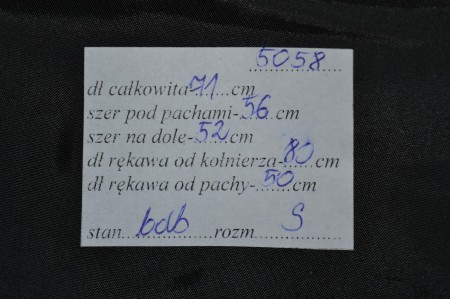 5058
dł całkowita 71 cm
szer pod pachami-56 cm
szer na dole-52 cm
dł rękawa od kołnierza-80 cm
dł rękawa od pachy-50 cm
stan bdb rozm S